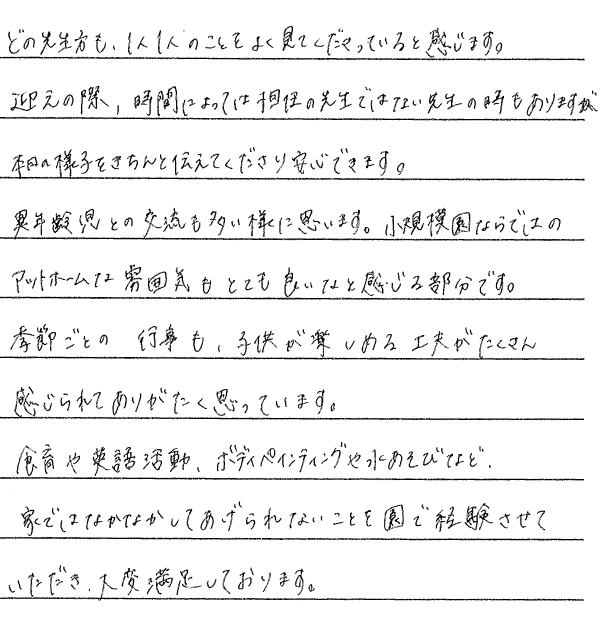 どの先生方も、1人1人のことをよく見てくださっていると感じます。
迎えの際、時間によっては担任の先生ではない先生の時もありますが
本日の様子をきちんと伝えてくださり安心できます。
異年齢児との交流も多い様に思います。小規模園ならではの
アットホームな雰囲気もとても良いなと感じる部分です。
季節ごとの行事も、子供が楽しめる工夫がたくさん
感じられてありがたく思っています。
食育や英語活動、ボディペインティングや水あそびなど、
家ではなかなかしてあげられないことを園で経験させて
いただき、大変満足しております。